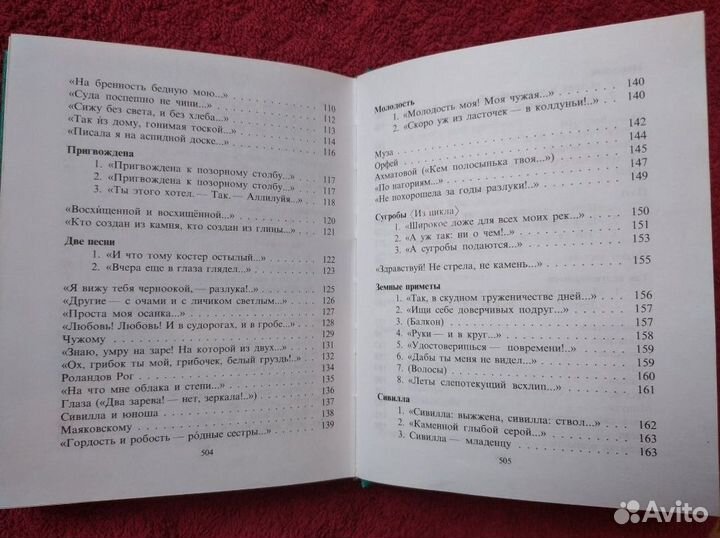 «На бренность бедную мою...» 110
«Суда поспешно не чини...» 112
«Сижу без света, и без хлеба...» 113
«Так и́з дому, гонимая тоской...» 114
«Писала я на аспидной доске...» 116
Пригвождена
1. «Пригвождена к позорному столбу...» 117
2. «Пригвождена к позорному столбу...» 117
3. «Ты этого хотел.— Так.— Аллилуйя...» 118
«Восхи́щенной и восхищённой...» 120
«Кто создан из камня, кто создан из глины...» 121
Две песни
1. «И что тому костер остылый...» 122
2. «Вчера еще в глаза глядел...» 123
«Я вижу тебя черноокой,— разлука!..» 125
«Другие — с очами и с личиком светлым...» 126
«Проста моя осанка...» 127
«Любовь! Любовь! И в судорогах, и в гробе...» 128
Чужому 129
«Знаю, умру на заре! На которой из двух...» 131
«Ох, грибок ты мой, грибочек, белый груздь!..» 133
Роландов Рог 134
«На что мне облака и степи...» 135
Глаза («Два зарева! — нет, зеркала!..») 137
Сивилла и юноша 138
Маяковскому 138
«Гордость и робость — ро́дные сестры...» 139
504
Молодость
1. «Молодость моя! Моя чужая...» 140
2. «Скоро уж из ласточек — в колдуньи!..» 140
Муза 142
Орфей 144
Ахматовой («Кем полосынька твоя...») 145
«По нагориям...» 147
«Не похорошела за годы разлуки!..» 149
Сугробы 〈Из цикла〉
1. «Широкое ложе для всех моих рек...» 150
2. «А уж так: ни о чем!..» 151
3. «А сугробы подаются...» 153
«Здравствуй! Не стрела, не камень...» 155
Земные приметы
1. «Так, в скудном труженичестве дней...» 156
2. «Ищи себе доверчивых подруг...» 157
3. (Балкон) 157
4. «Руки — и в круг...» 158
5. «Удостоверишься — повремени!..» 159
6. «Дабы ты меня не видел...» 159
7. (Волосы) 160
8. «Леты слепотекущий всхлип...» 161
Сивилла
1. «Сивилла: выжжена, сивилла: ствол...» 162
2. «Каменной глыбой серой...» 163
3. Сивилла — младенцу 163
505
Avito